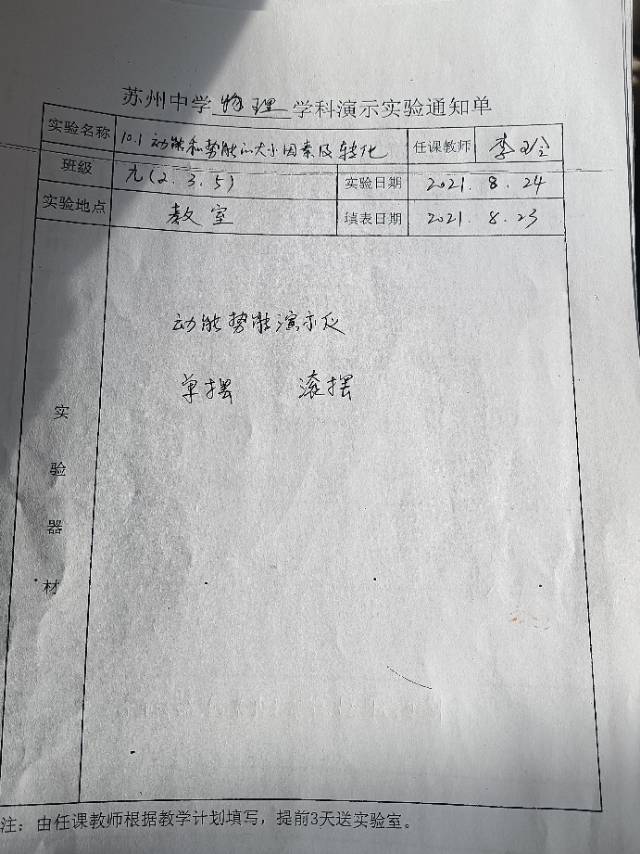 苏州中学物理学科演示实验通知单
实验名称 10.1 动能和势能的大小因素及转化 任课教师 李
班级 九(2.3.5) 实验日期 2021.8.24
实验地点 教室 填表日期 2021.8.23
动能势能演示仪
单摆 滚摆
实验器材
注:由任课教师根据教学计划填写,提前3天送实验室。